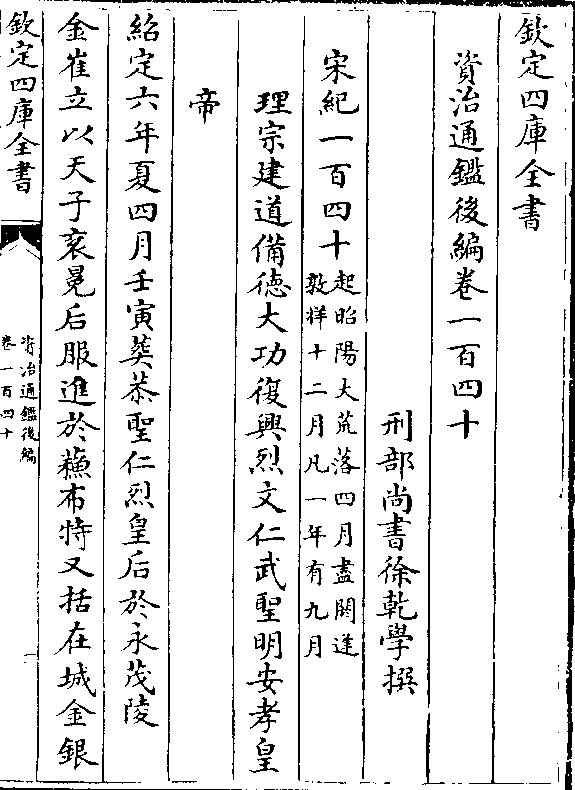 欽定四庫全書
資治通鑑後編卷一百四十
刑部尚書徐乾學撰
宋紀一百四十起昭陽大荒落四月盡閼逢
敦牂十二月凡一年有九月
理宗建道備德大功復興烈文仁武聖明安孝皇
帝
紹定六年夏四月壬寅葬恭聖仁烈皇后於永茂陵
金崔立以天子衮冕后服進於蘓布特又括在城金銀
欽定四庫全書
資治通鑑後編
卷一百四十
一